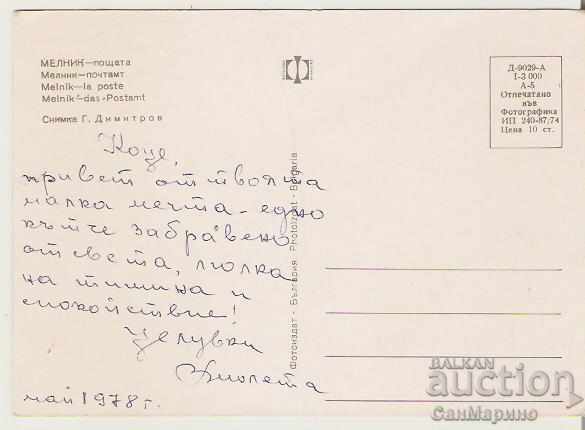 МЕЛНИК—пощата
Мелник—почтамт
Melnik—la poste
Melnik—das Postamt
Снимка Г. Димитров
Д-9029-А
I-3 000
А-5
Отпечатано
във
Фотографика
ИП 240-87/74
Цена 10 ст.
Коце,
привет от твоята
малка мечта - едно
кътче забравено
от света, люлка
на тишина и
спокойствие!
Целувки
Виолета
май 1978 г.
Фотоиздат - България Photoizdat - Bulgaria
BALKAN
auction
СанМарино